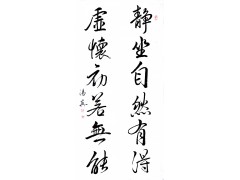 靜坐自然有得
虛懷初若無能